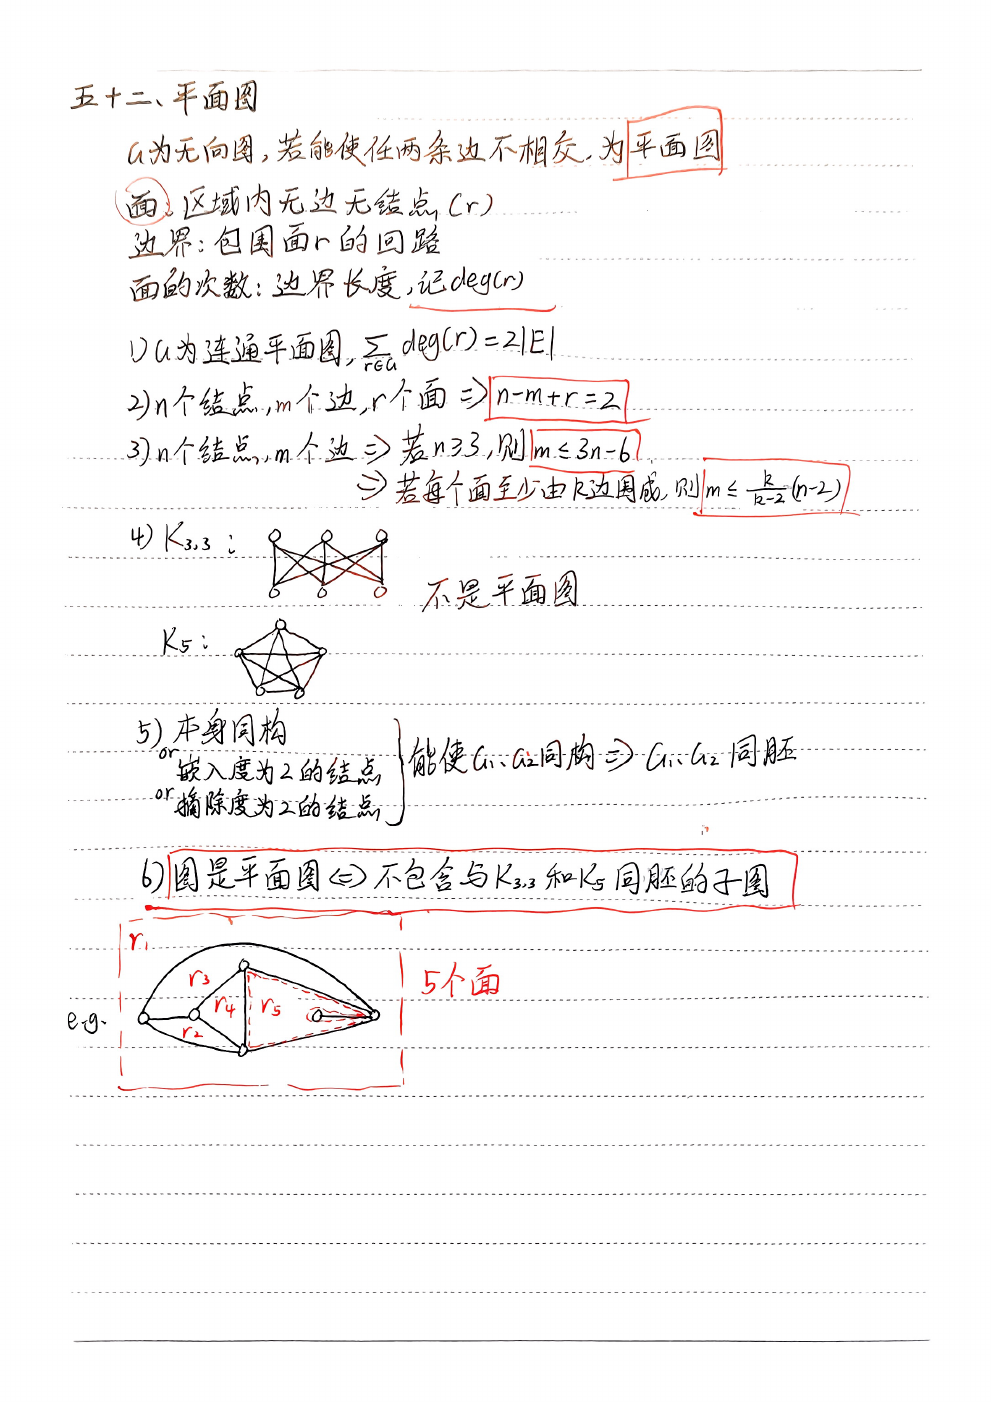 五十二、平面图
G为无向图,若能使任两条边不相交,为平面图
面:区域内无边无结点(r)
边界:包围面r的回路
面的次数:边界长度,记deg(r)
1)G为连通平面图,∑_{r∈G} deg(r)=2|E|
2)n个结点,m个边,r个面 ⇒ n-m+r=2
3)n个结点,m个边 ⇒ 若n≥3,则 m≤3n-6
⇒ 若每个面至少由k边围成,则 m≤ k/(k-2) (n-2)
4) K3,3:
不是平面图
K5:
5) 本身同构
or 嵌入度为2的结点
or 摘除度为2的结点
能使G1、G2同构 ⇒ G1、G2同胚
6) 图是平面图 ⇔ 不包含与K3,3和K5同胚的子图
e.g.
r1
r3
r4
r5
r2
5个面